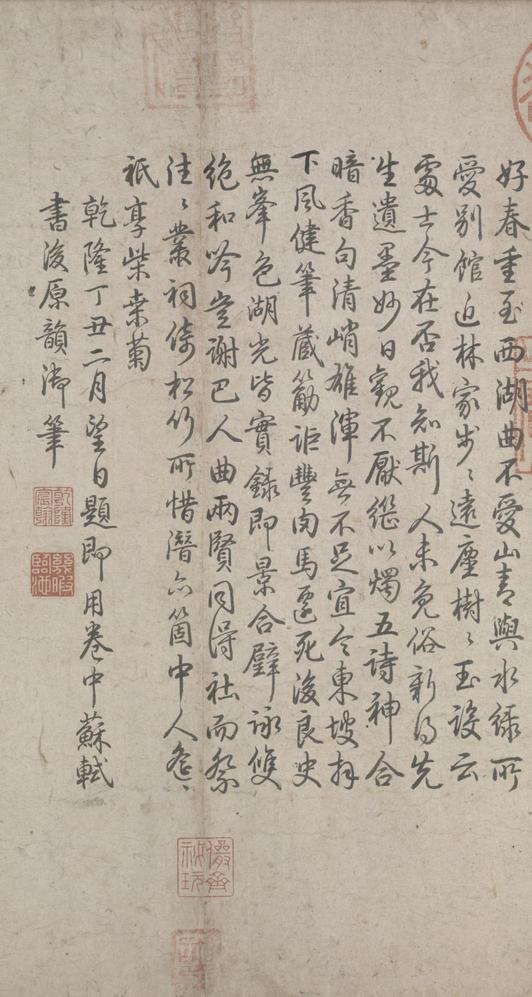 好春重至西湖曲不愛山青與水綠所
愛別館近林家步〻遠塵樹〻玉設云
處士今在否我知斯人未免俗新得先
生遺墨妙日觀不厭繼以燭五詩神合
暗香句清峭雄渾無不足宜令東坡拜
下風健筆藏筋詎豐肉馬遷死後良史
無峯色湖光皆實錄即景合璧詠雙
絶和吟豈謝巴人曲兩賢同得社而祭
往〻叢祠倚松竹所惜潛亦箇中人
祇享柴桒菊
乾隆丁丑二月望日題即用卷中蘇軾
書後原韻御筆
乾隆宸翰
幾暇臨池
儼齋秘玩